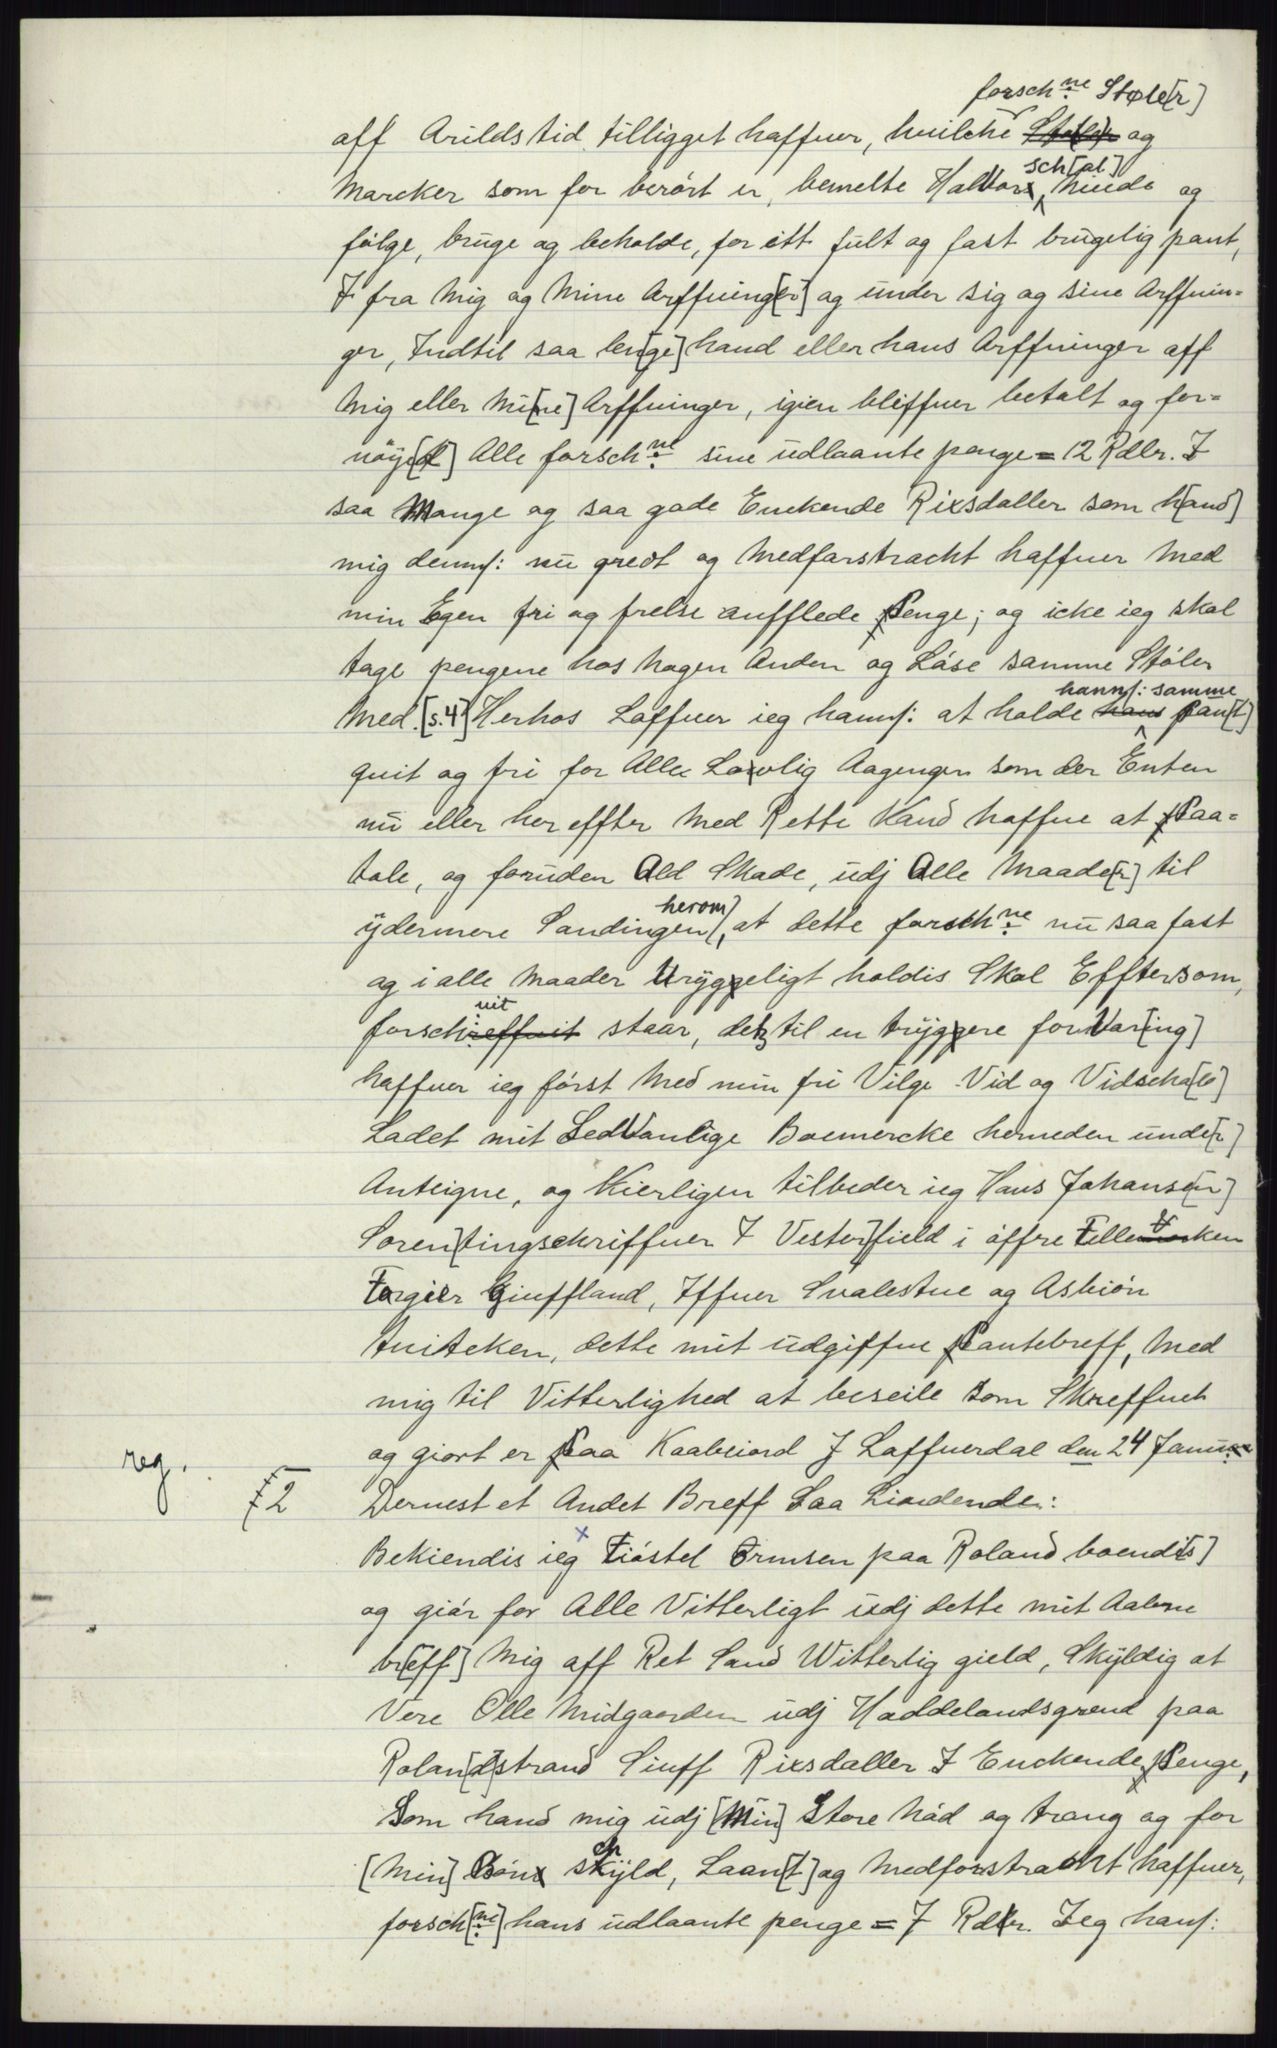 forsch:ne Støle[r]
aff Arilds tid tilligget haffuer, huilche Støler og
Marcker som for berört er, bemelte Halvor sch[al] niude og
fölge, bruge og beholde, for itt fult og fast brugelig pant,
I fra Mig og Mine Arffuing[er] og under sig og sine Arffuin-
ger, Indtil saa len[ge] hand eller hans Arffuinger aff
Mig eller Mi[ne] Arffuinger, igien bliffuer betalt og for-
nöye[d] Alle forsch:ne sine udlaante penge = 12 Rdlr. I
saa Mange og saa gode Enckende Rixsdaller som h[and]
mig dennf: nu gredt og Medforstracht haffuer Med
min Egen fri og frelse aufflede Penge; og icke ieg skal
tage pengene hos Nogen Anden og Låse samme Stöler
Med. [s.4] Herhos Laffuer ieg hannf: at holde hans hannf: samme pan[t]
quit og fri for Alle Lovlig Aagengen som der Enten
nu eller her effter Med Rette Kand haffue at Paa-
tale, og foruden Ald Skade, udj Alle Maade[r] til
ydermere Sandingen herom, at dette forsch:ne nu saa fast
og i alle Maader Uryggeligt holdis Skal Efftersom,
forschreffuit uit staar, dets til en tryggere forVar[ing]
haffuer ieg först Med min fri Vilge Vid og Vidscha[b]
Ladet mit SedVanlige Boemercke herneden unde[r]
Anteigne, og Kierligen tilbeder ieg Hans Johanse[n]
Soren[tingschriffuer I Vester]field i öffre Tellemarken
Torgier Giuffland, Iffuer Sualestue og Asbiön
tuiteken, dette mit udgiffue Pantebreff, Med
mig til Vitterlighed at beseile som Skreffuet
og giort er Paa Kaabeiord J Laffuerdal den 24 Janu
reg.
2 Dernest et Andet Breff Saa Liudende:
Bekiendis ieg Tiöstel Ormsen paa Roland boend[is]
og giör for Alle Vitterligt udj dette mit Aabne
br[eff] Mig aff Ret Sand Witterlig gield, Skyldig at
Vere Olle Midgaarden udj Haddelandsgrend paa
Rolan[d]strand Siuff Rixsdaller I Enckende Penge,
Som hand mig udj [Min] Store Nöd og trang og for
[Min] Böns schyld, Laan[t] og Medforstracht haffuer,
forsch[:ne] hans udlaante penge = 7 Rdlr. Ieg hanf: